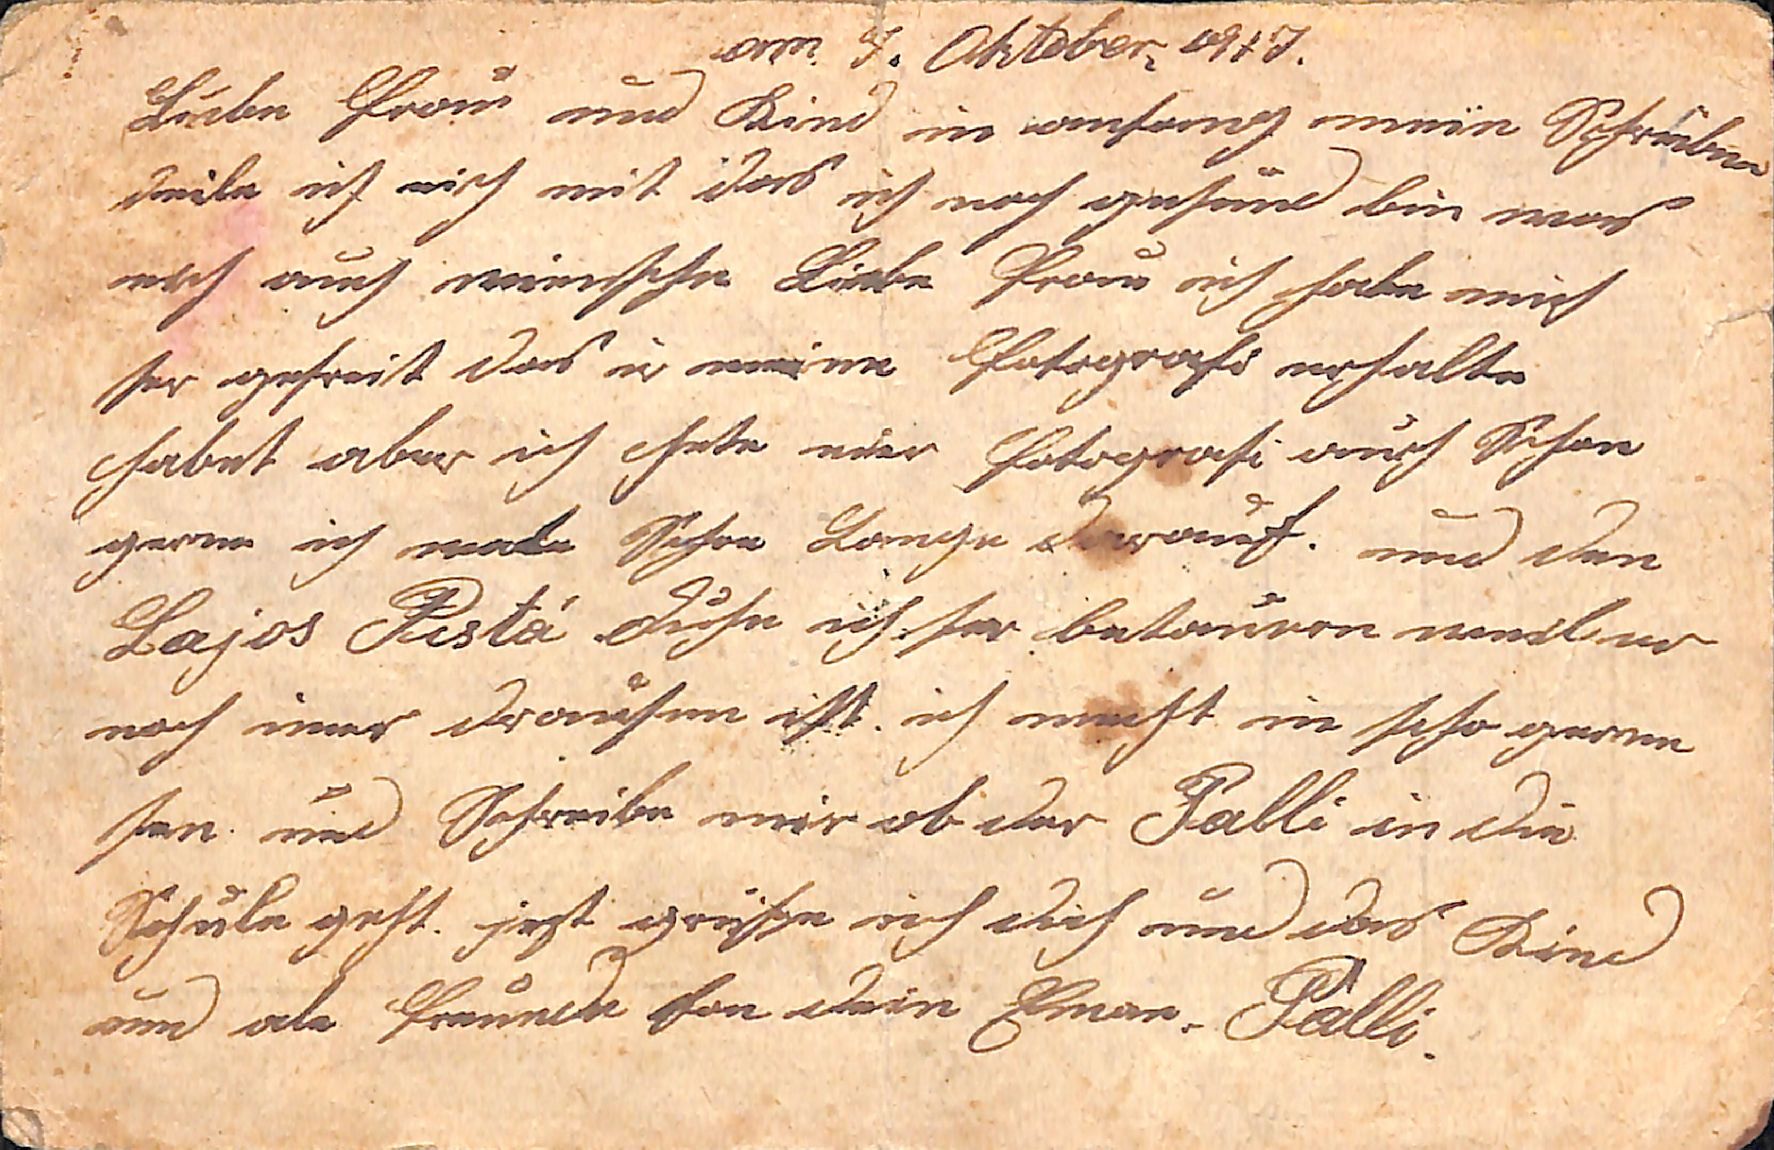 am 7. Oktober 1917.
Liebe Frau und Kind in anfang mein Schreiben
deile ich eich mit das ich noch gesund bin was
eich auch winsche Liebe Frau ich habe mich
ser gefreit das ir meine Fotografi erhalte
habet aber ich hete eier Fotografi auch Schon
gerne ich warte Schon Lange darauf. und den
Lajos Pista duhe ich ser betauren weil er
noch imer drausen ist. ich mecht in scho gerne
sen. und Schreibe mir ob der Palli in die
Schule geht. jezt grüsse ich dich und das Kind
und ale Freunde fon dein Eman. Palli.